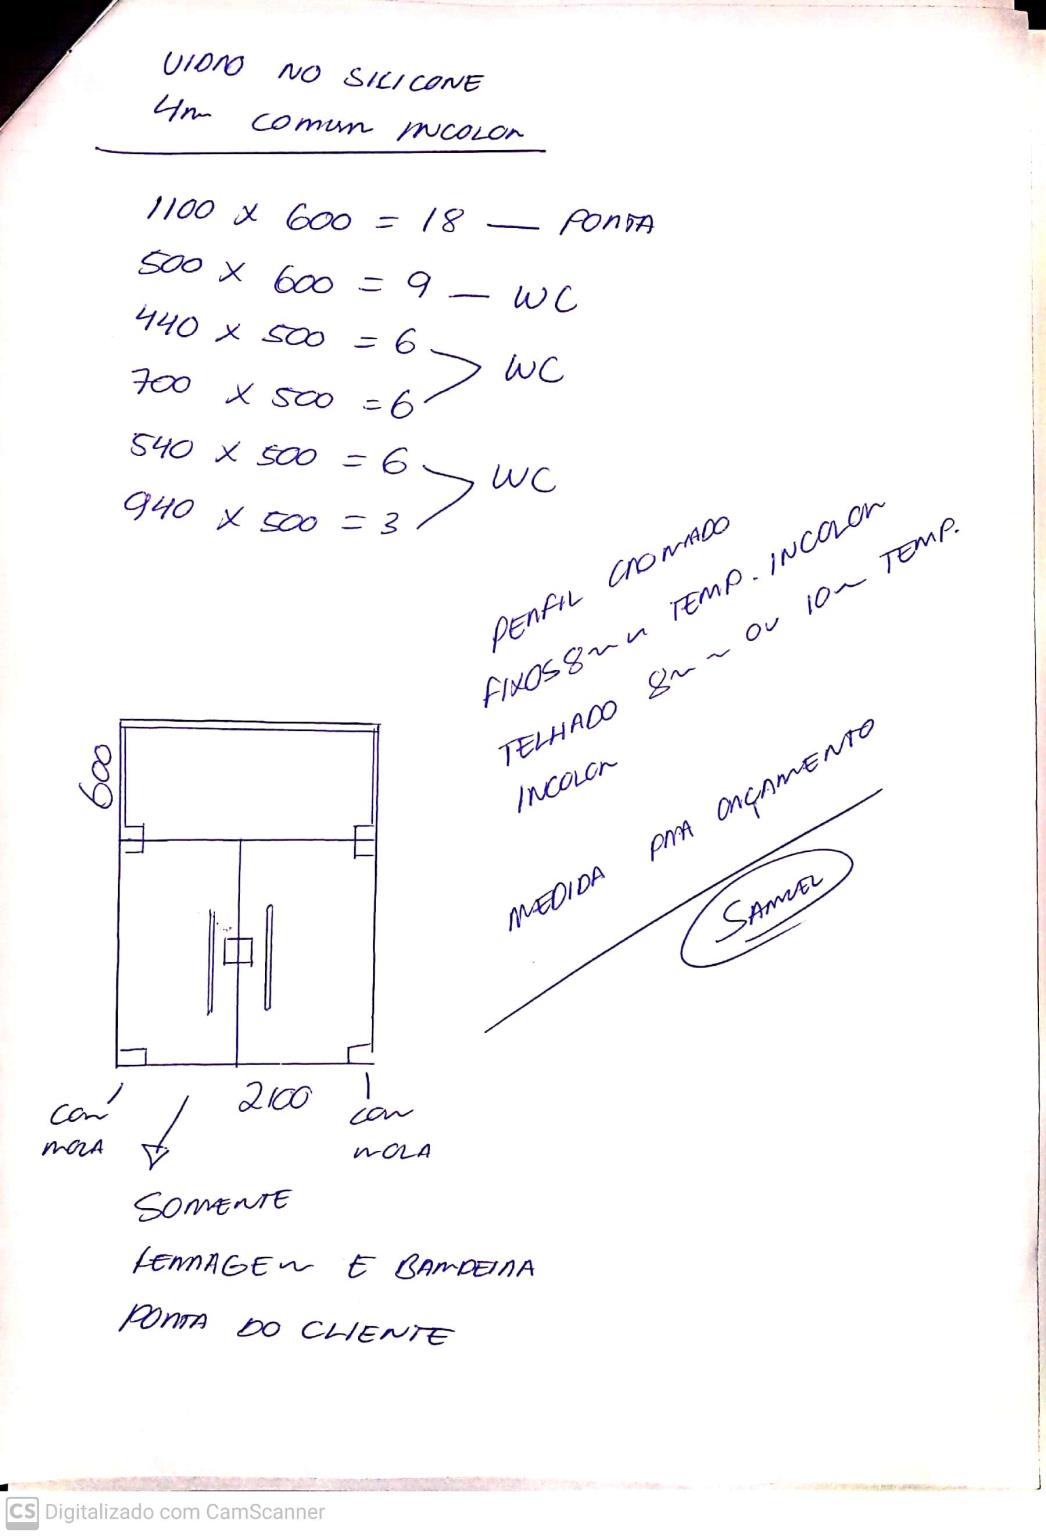 VIDRO NO SILICONE
4m comum INCOLOR
1100 x 600 = 18 — PORTA
500 x 600 = 9 — WC
440 x 500 = 6
700 x 500 = 6
WC
540 x 500 = 6
940 x 500 = 3
WC
PERFIL CROMADO
FIXOS 8mm TEMP. INCOLOR
TELHADO 8mm OU 10m TEMP.
INCOLOR
MEDIDA PARA ORÇAMENTO
SAMUEL
600
2100
COM
MOLA
COM
MOLA
SOMENTE
FERRAGEM E BANDEIRA
PORTA DO CLIENTE
CS Digitalizado com CamScanner